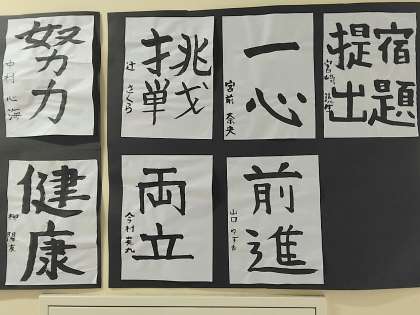 努力
中村 心海
挑戦
辻 さくら
一心
宮前 奈央
宿題
提出
宮崎
健康
柳
両立
今村
前進
山口